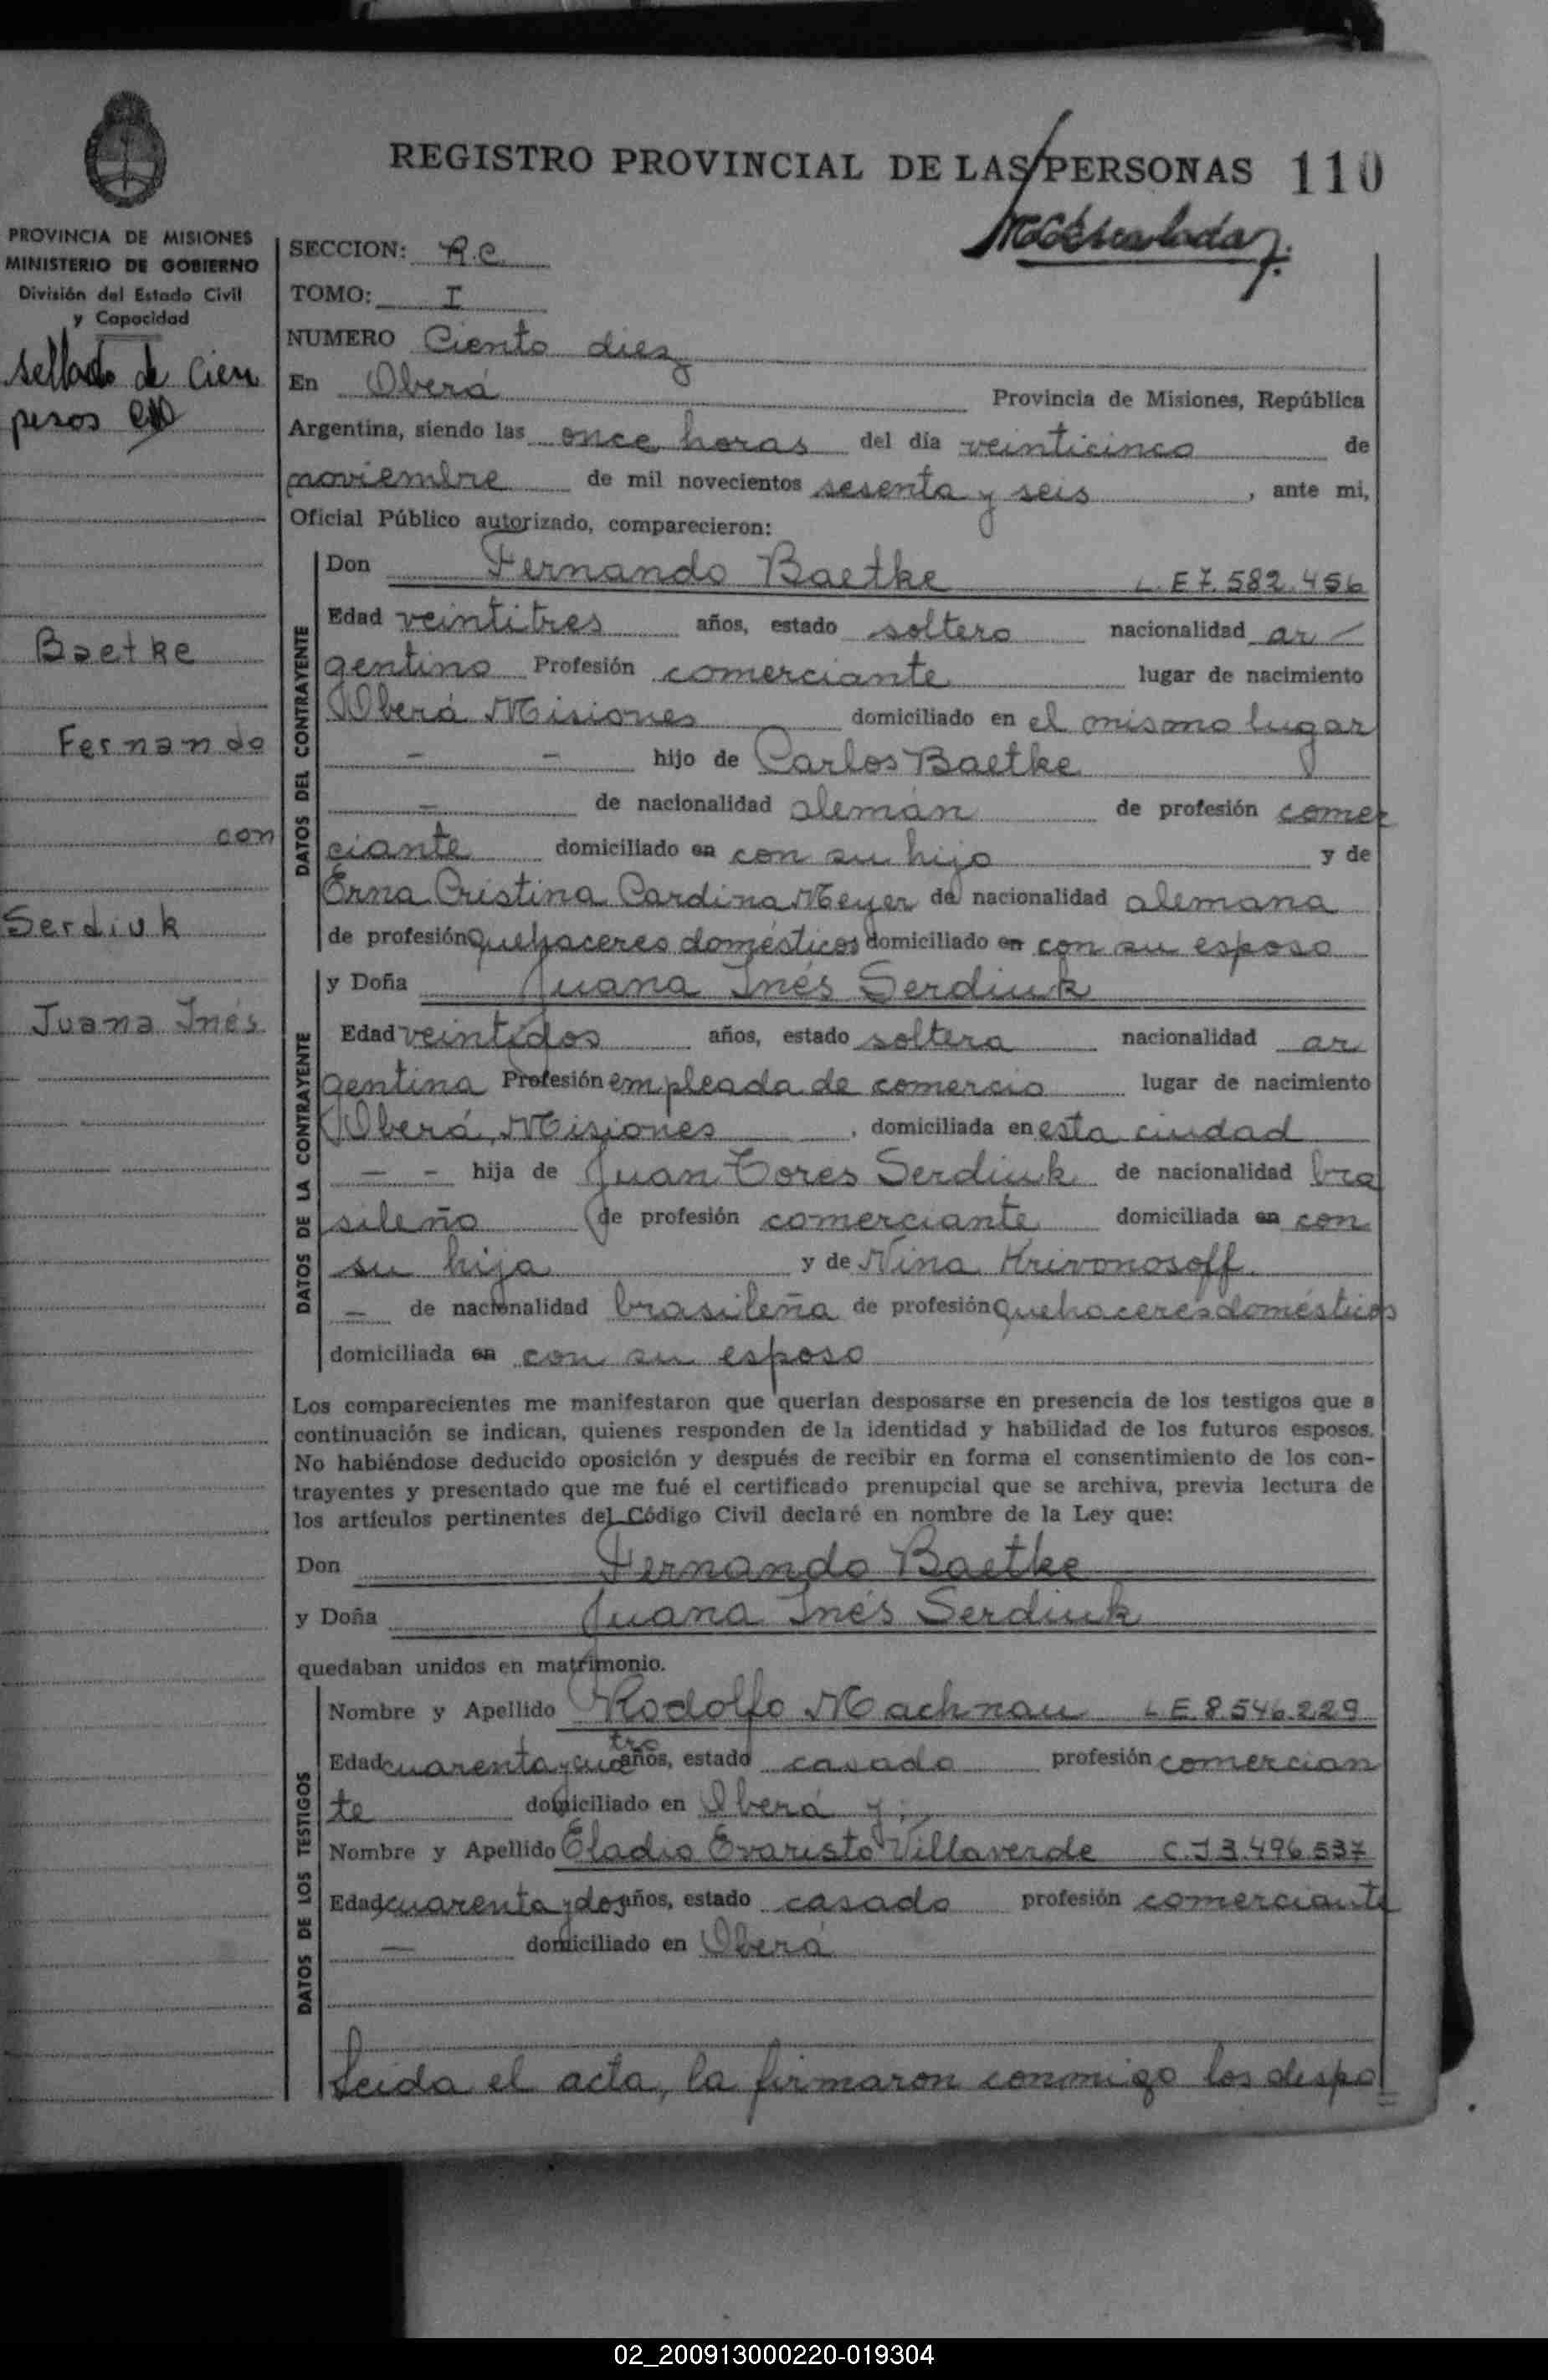 REGISTRO PROVINCIAL DE LAS PERSONAS 110
PROVINCIA DE MISIONES
MINISTERIO DE GOBIERNO
División del Estado Civil
y Capacidad
sellado de cien
pesos
Baetke
Fernando
con
Serdiuk
Juana Inés
SECCION: R.C.
TOMO: I
NUMERO Ciento diez
En Oberá Provincia de Misiones, República
Argentina, siendo las once horas del día veinticinco de
noviembre de mil novecientos sesenta y seis, ante mi,
Oficial Público autorizado, comparecieron:
DATOS DEL CONTRAYENTE
Don Fernando Baetke L.E 7.582.456
Edad veintitres años, estado soltero nacionalidad ar
gentino Profesión comerciante lugar de nacimiento
Oberá Misiones domiciliado en el mismo lugar
- - hijo de Carlos Baetke
- de nacionalidad alemán de profesión comer
ciante domiciliado en con su hijo y de
Erna Cristina Cardina Meyer de nacionalidad alemana
de profesión quehaceres domésticos domiciliado en con su esposo
DATOS DE LA CONTRAYENTE
y Doña Juana Inés Serdiuk
Edad veintidos años, estado soltera nacionalidad ar
gentina Profesión empleada de comercio lugar de nacimiento
Oberá, Misiones, domiciliada en esta ciudad
- - hija de Juan Tores Serdiuk de nacionalidad bra
sileño de profesión comerciante domiciliada en con
su hija y de Nina Krivonosoff
- de nacionalidad brasileña de profesión quehaceres domésticos
domiciliada en con su esposo
Los comparecientes me manifestaron que querían desposarse en presencia de los testigos que a
continuación se indican, quienes responden de la identidad y habilidad de los futuros esposos.
No habiéndose deducido oposición y después de recibir en forma el consentimiento de los con-
trayentes y presentado que me fué el certificado prenupcial que se archiva, previa lectura de
los artículos pertinentes del Código Civil declaré en nombre de la Ley que:
Don Fernando Baetke
y Doña Juana Inés Serdiuk
quedaban unidos en matrimonio.
DATOS DE LOS TESTIGOS
Nombre y Apellido Rodolfo Machnau L.E. 8.546.229
Edad cuarenta y cuatro años, estado casado profesión comercian
te domiciliado en Oberá y;
Nombre y Apellido Eladio Evaristo Villaverde C.I 3.496.537
Edad cuarenta y dos años, estado casado profesión comerciante
- domiciliado en Oberá
Leida el acta, la firmaron conmigo los despo
02_200913000220-019304